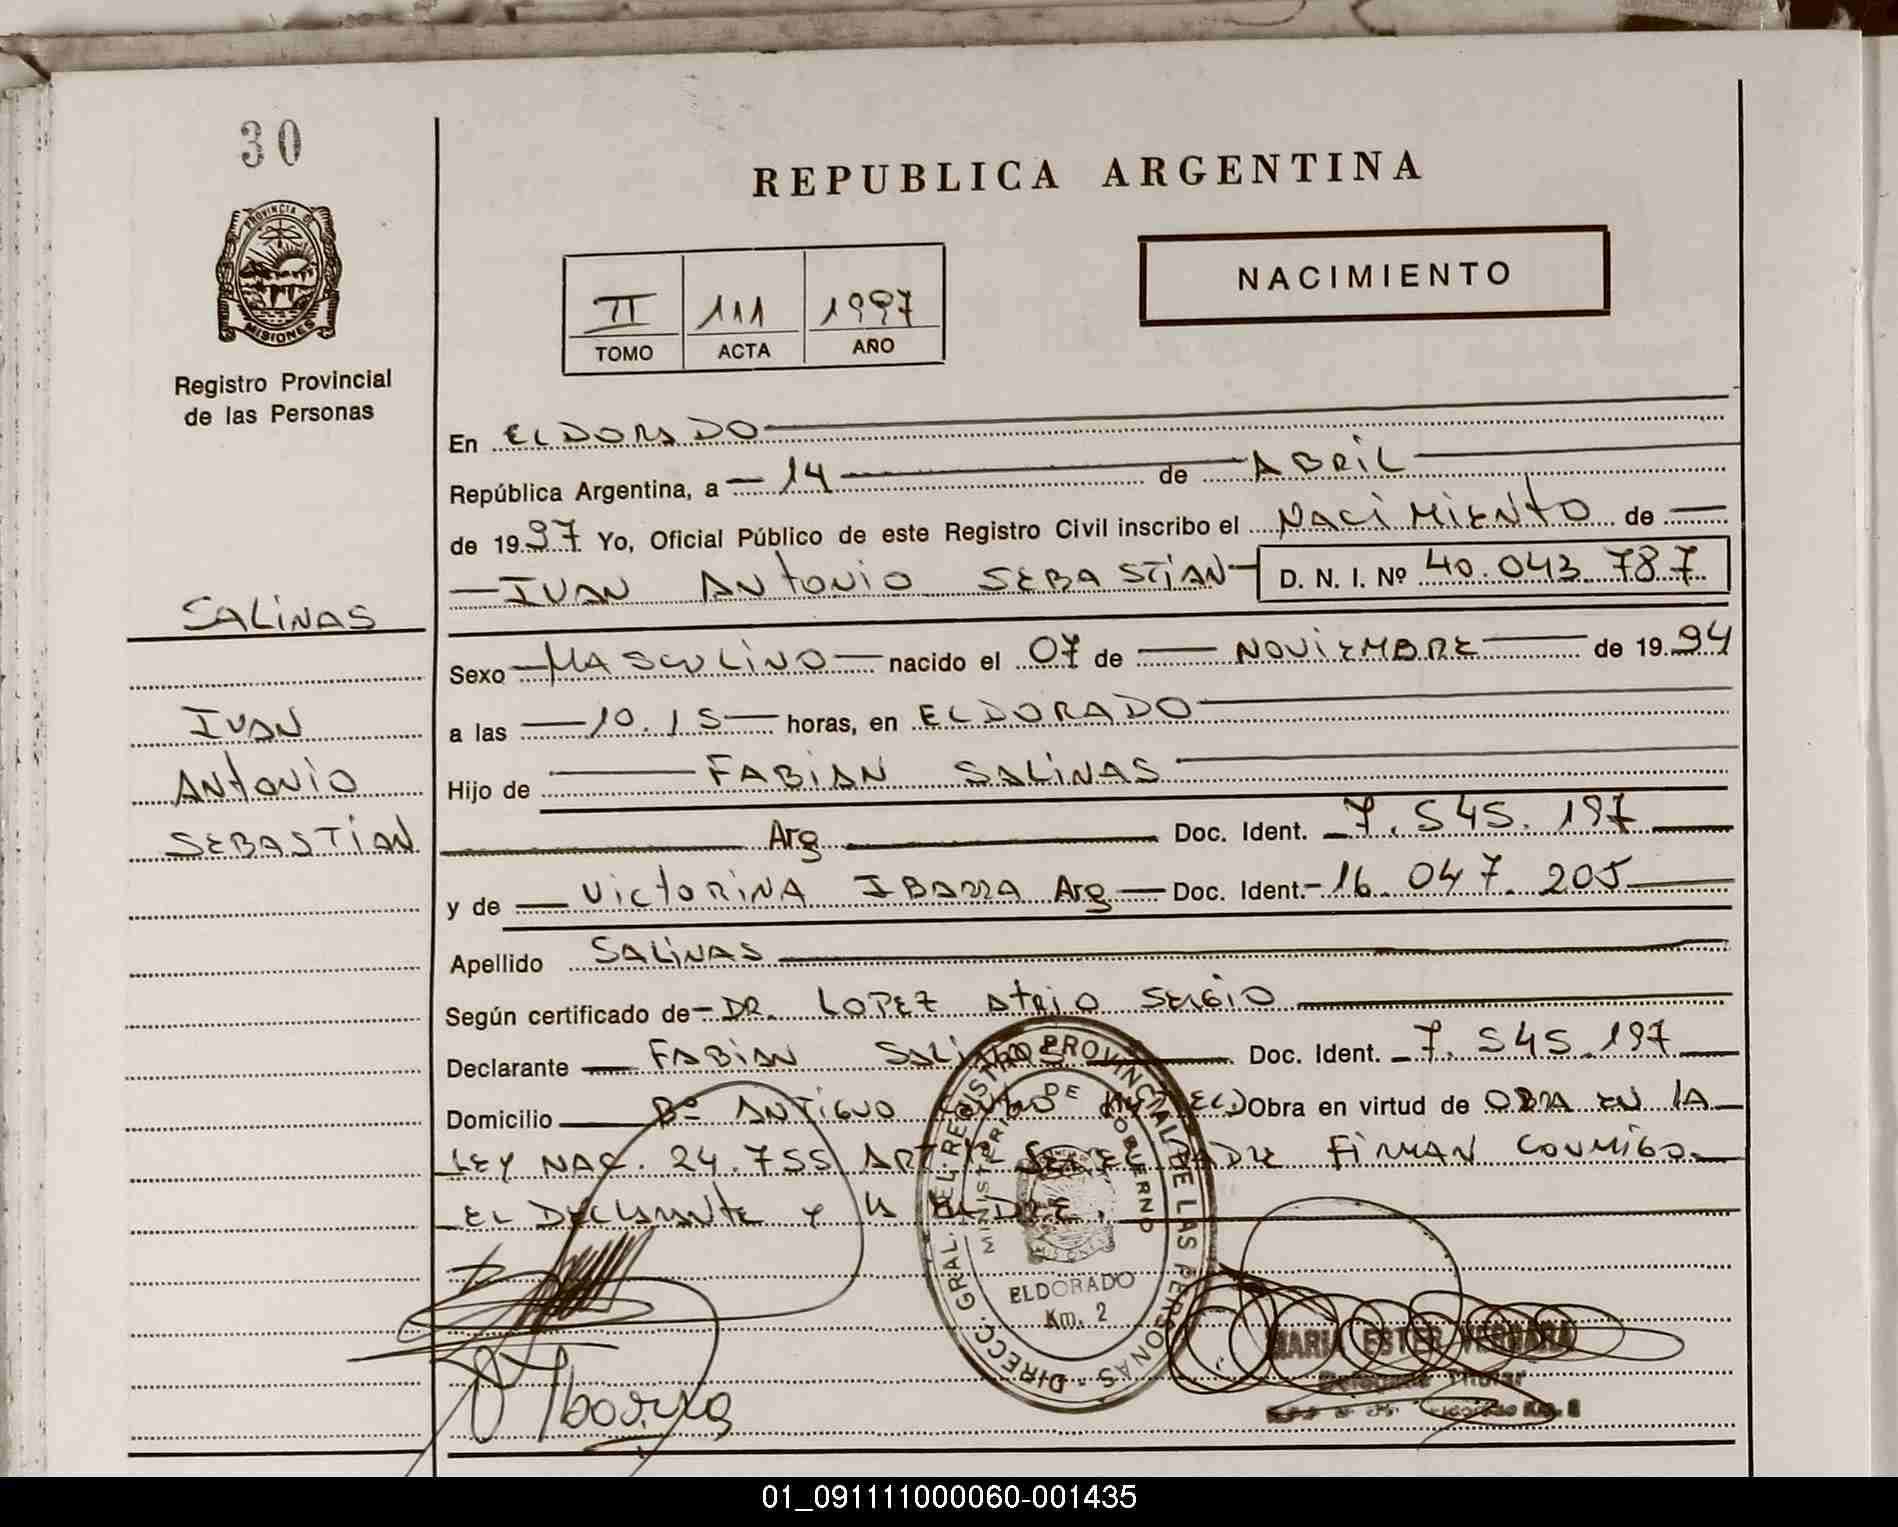 30
PROVINCIA DE
MISIONES
Registro Provincial
de las Personas
SALINAS
IVAN
ANTONIO
SEBASTIAN
REPUBLICA ARGENTINA
NACIMIENTO
II 111 1997
TOMO ACTA AÑO
En ELDORADO
República Argentina, a 14 de ABRIL
de 1997 Yo, Oficial Público de este Registro Civil inscribo el NACIMIENTO de
IVAN ANTONIO SEBASTIAN D. N. I. Nº 40.043.787
Sexo MASCULINO nacido el 07 de NOVIEMBRE de 1994
a las 10.15 horas, en ELDORADO
Hijo de FABIAN SALINAS
Arg Doc. Ident. 7.545.197
y de VICTORINA IBARRA Arg Doc. Ident. 16.047.205
Apellido SALINAS
Según certificado de DR. LOPEZ ATRIO SERGIO
Declarante FABIAN SALINAS Doc. Ident. 7.545.197
Domicilio Bº ANTIGUO ELD Obra en virtud de OBRA EN LA
LEY NAC. 24.755 ART FIRMAN CONMIGO
EL DECLARANTE Y LA MADRE.
DIRECC. GRAL. DEL REGISTRO PROVINCIAL DE LAS PERSONAS
MINISTERIO DE GOBIERNO
MISIONES
ELDORADO
Km. 2
Ibarra
MARIA ESTER VERGARA
Delegada Titular
01_091111000060-001435